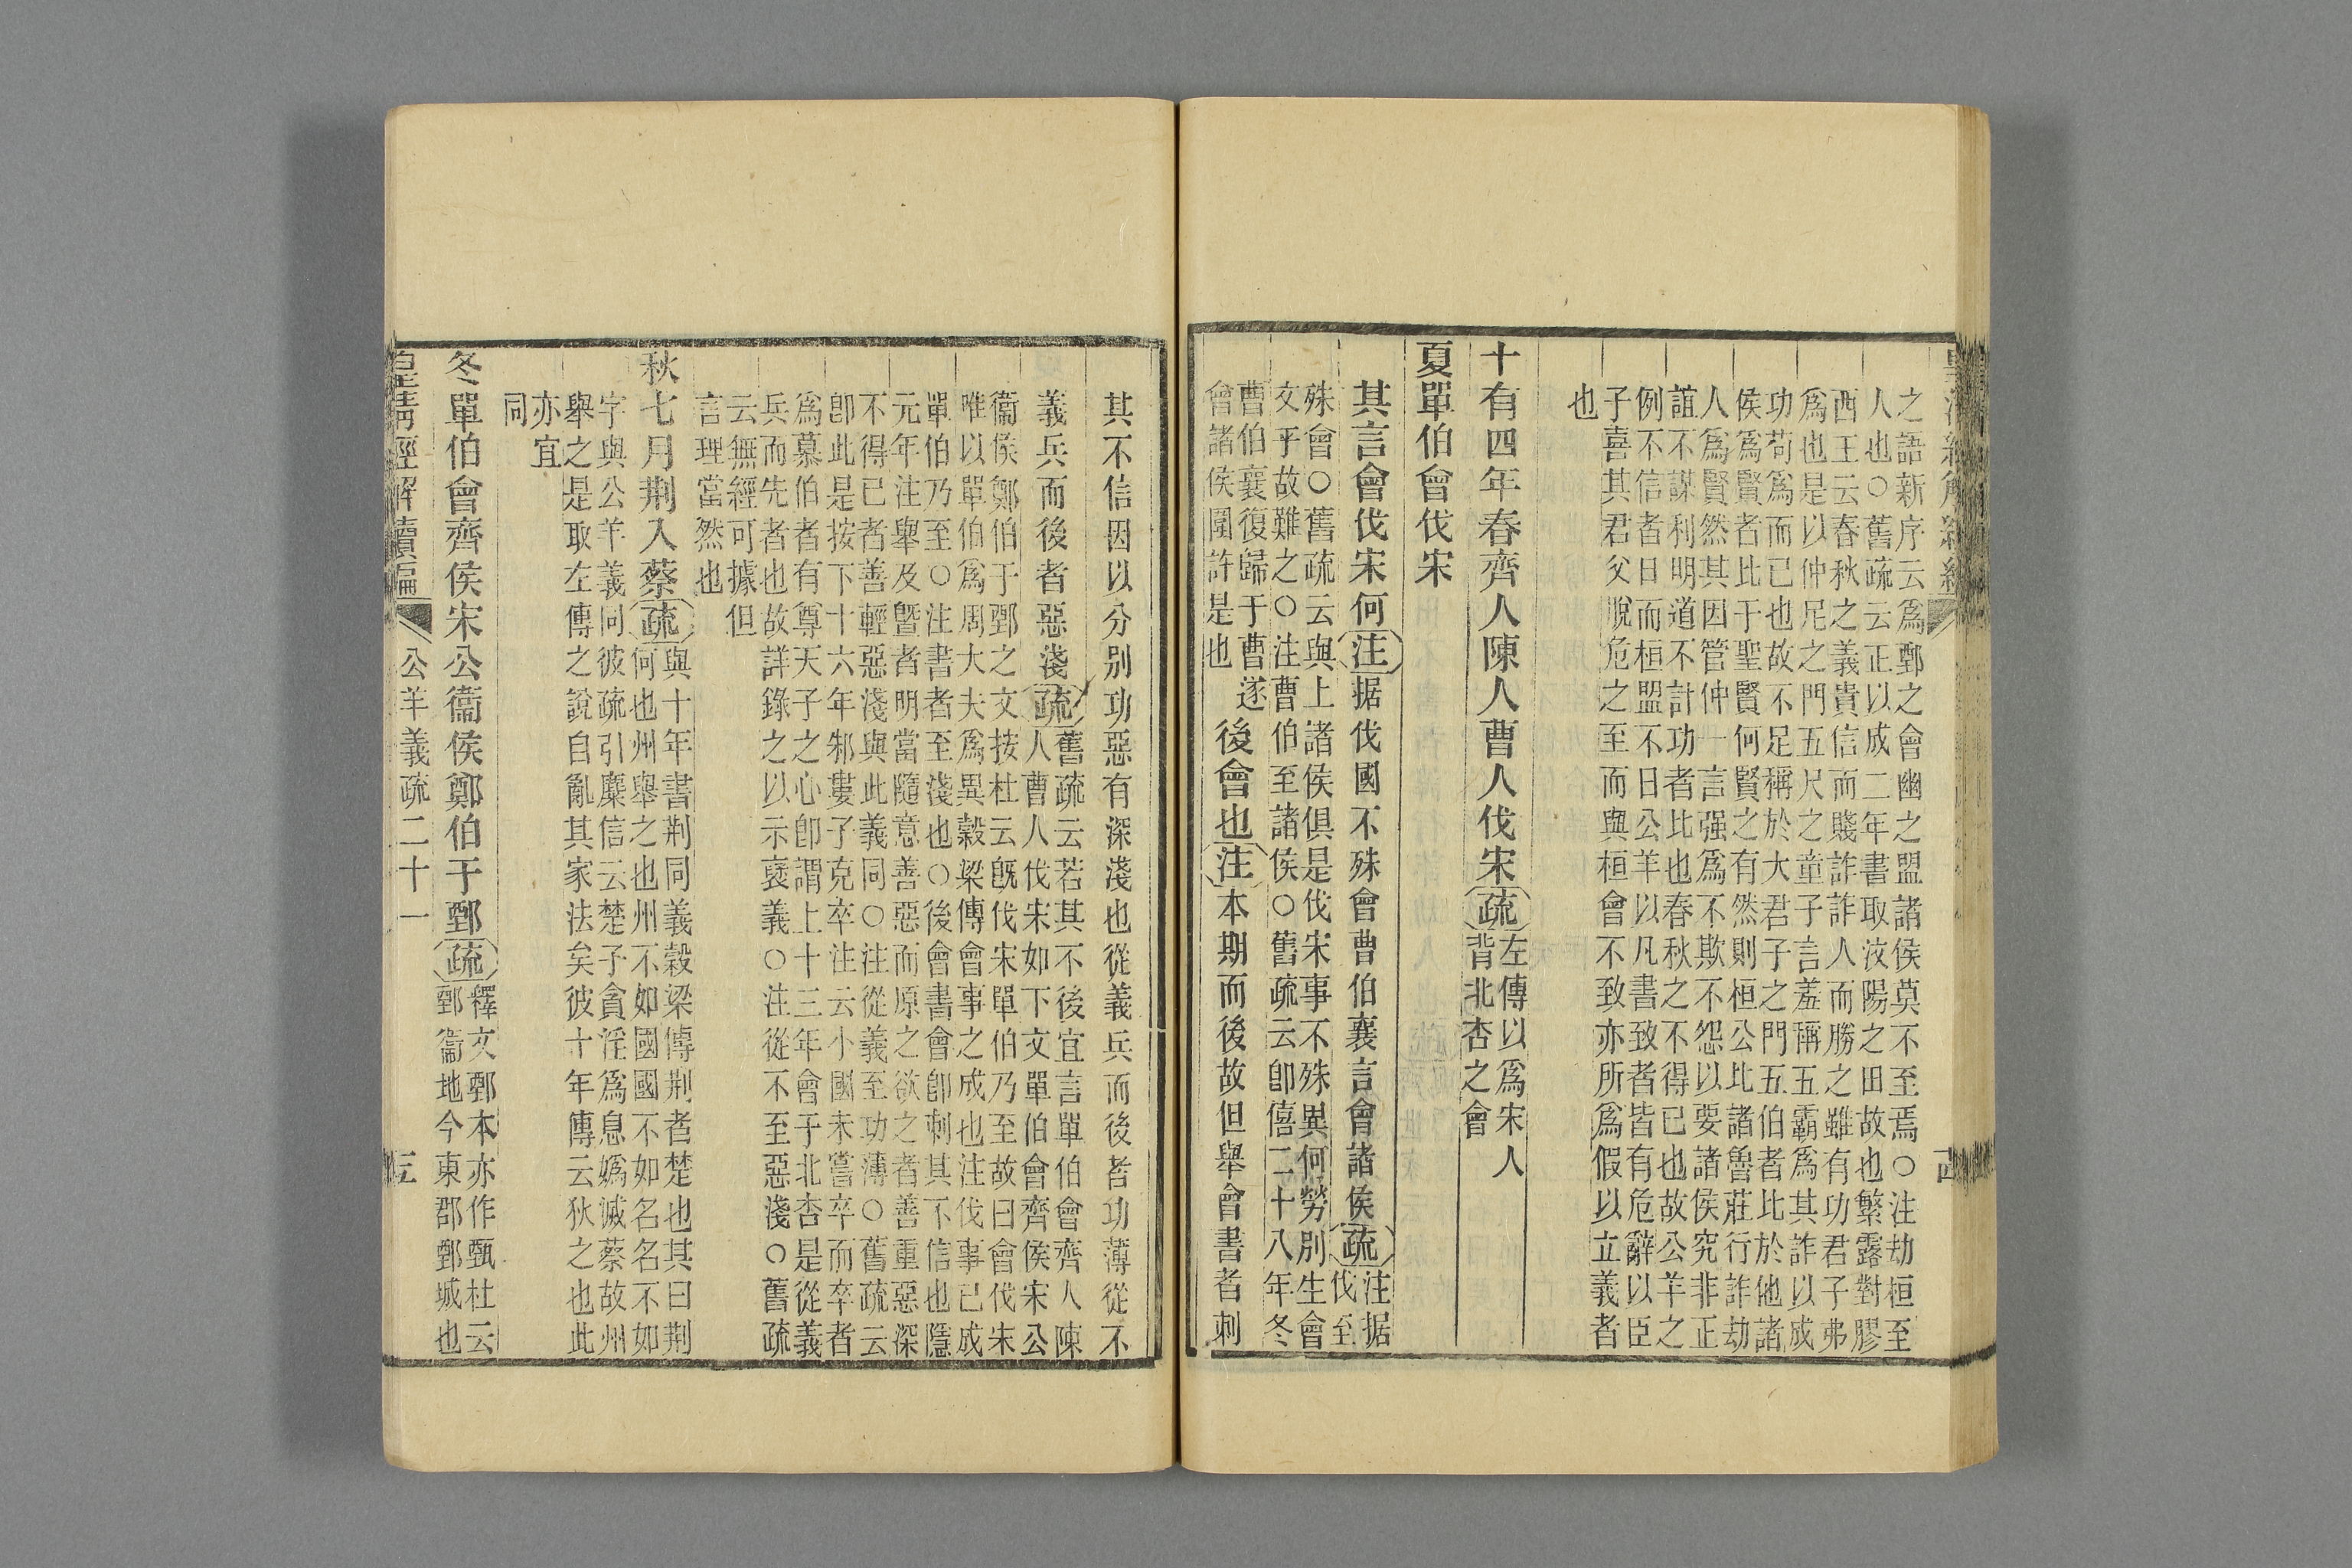 之語新序云爲鄄之會幽之盟諸侯莫不至焉○注劫桓至
人也○舊疏云正以成二年書取汶陽之田故也繁露對膠
西王云春秋之義貴信而賤詐詐人而勝之雖有功君子弗
爲也是以仲尼之門五尺之童子言羞稱五霸爲其詐以成
功苟爲而已也故不足稱於大君子之門五伯者比於他諸
侯爲賢者比于聖賢何賢之有然則桓公比諸魯莊行詐劫
人爲賢然其因管仲一言强爲不欺不怨以要諸侯究非正
誼不謀利明道不計功者比也春秋之不得已也故公羊之
例不信者日而桓盟不日公羊以凡書致者皆有危辭以臣
子喜其君父脫危之至而與桓會不致亦所爲假以立義者
也
十有四年春齊人陳人曹人伐宋疏左傳以爲宋人
背北杏之會
夏單伯會伐宋
其言會伐宋何注据伐國不殊會曹伯襄言會諸侯疏注据
伐至
殊會○舊疏云與上諸侯俱是伐宋事不殊異何勞別生會
文乎故難之○注曹伯至諸侯○舊疏云卽僖二十八年冬
曹伯襄復歸于曹遂
會諸侯圍許是也
後會也注本期而後故但舉會書者刺
其不信因以分別功惡有深淺也從義兵而後者功薄從不
義兵而後者惡淺疏舊疏云若其不後宜言單伯會齊人陳
人曹人伐宋如下文單伯會齊侯宋公
衞侯鄭伯于鄄之文按杜云旣伐宋單伯乃至故曰會伐宋
唯以單伯爲周大夫爲異穀梁傳會事之成也注伐事已成
單伯乃至○注書者至淺也○後會書會卽刺其不信也隱
元年注舉及曁者明當隨意善惡而原之欲之者善重惡深
不得已者善輕惡淺與此義同○注從義至功薄○舊疏云
卽此是按下十六年邾婁子克卒注云小國未嘗卒而卒者
爲慕伯者有尊天子之心卽謂上十三年會于北杏是從義
兵而先者也故詳錄之以示襃義○注從不至惡淺○舊疏
云無經可據但
言理當然也
秋七月荆入蔡疏與十年書荆同義穀梁傳荆者楚也其曰荆
何也州舉之也州不如國國不如名名不如
字與公羊義同彼疏引麋信云楚子貪淫爲息嬀滅蔡故州
舉之是取左傳之說自亂其家法矣彼十年傳云狄之也此
亦宜
同
冬單伯會齊侯宋公衞侯鄭伯于鄄疏釋文鄄本亦作甄杜云
鄄衞地今東郡鄄城也
皇淸經解續編 公羊義疏二十一